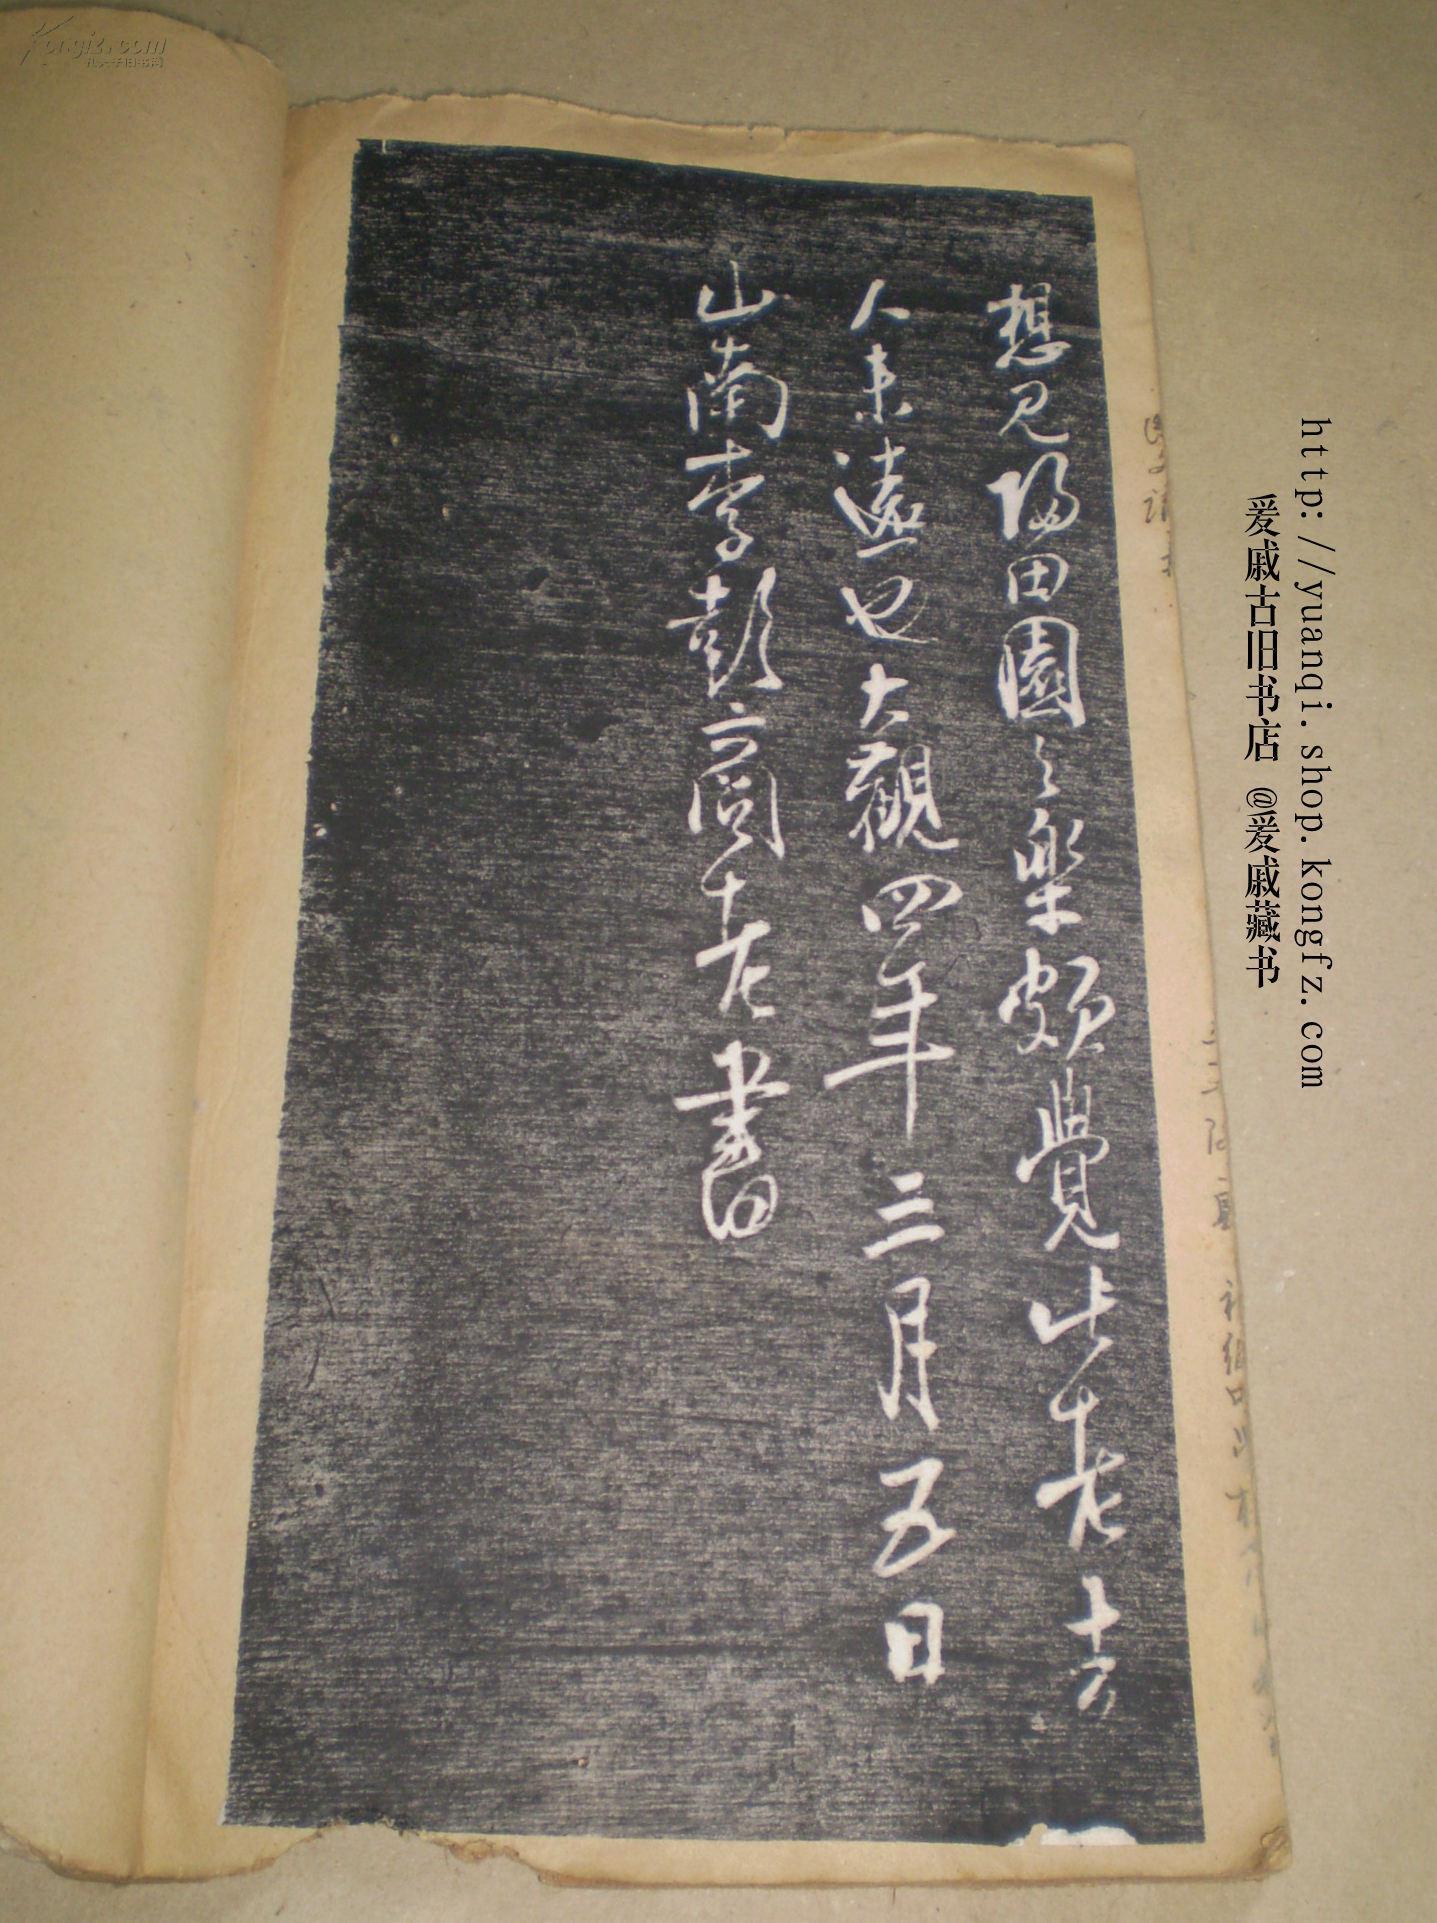 想見歸田園之樂頗覺此老去
人未遠也大觀四年三月五日
山南李彭商老書
http://yuanqi.shop.kongfz.com
爰戚古旧书店 @爰戚藏书
Kongfz.com
孔夫子旧书网